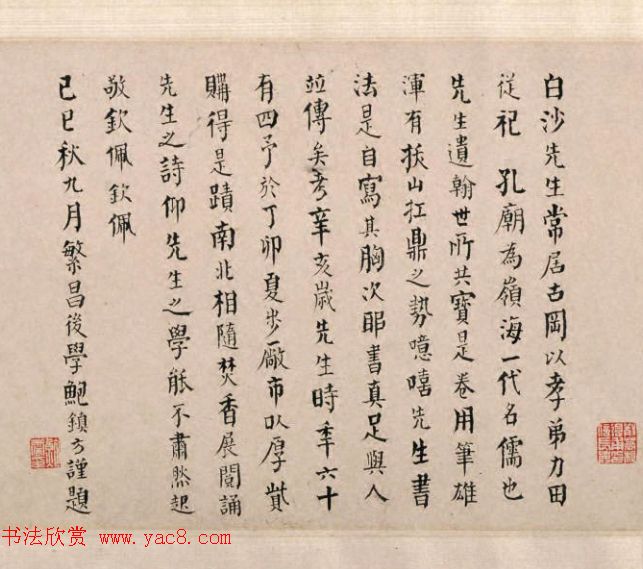 白沙先生常居古岡以孝弟力田
從祀 孔廟為嶺海一代名儒也
先生遺翰世所共寶是卷用筆雄
渾有拔山扛鼎之勢噫嘻先生書
法是自寫其胸次耶書真足與人
竝傳矣考辛亥歲先生時年六十
有四予於丁卯夏步廠市以厚貲
購得是蹟南北相隨焚香展閱誦
先生之詩仰先生之學能不肅然起
敬欽佩欽佩
己巳秋九月繁昌後學鮑鎮方謹題
书法欣赏 www.yac8.com